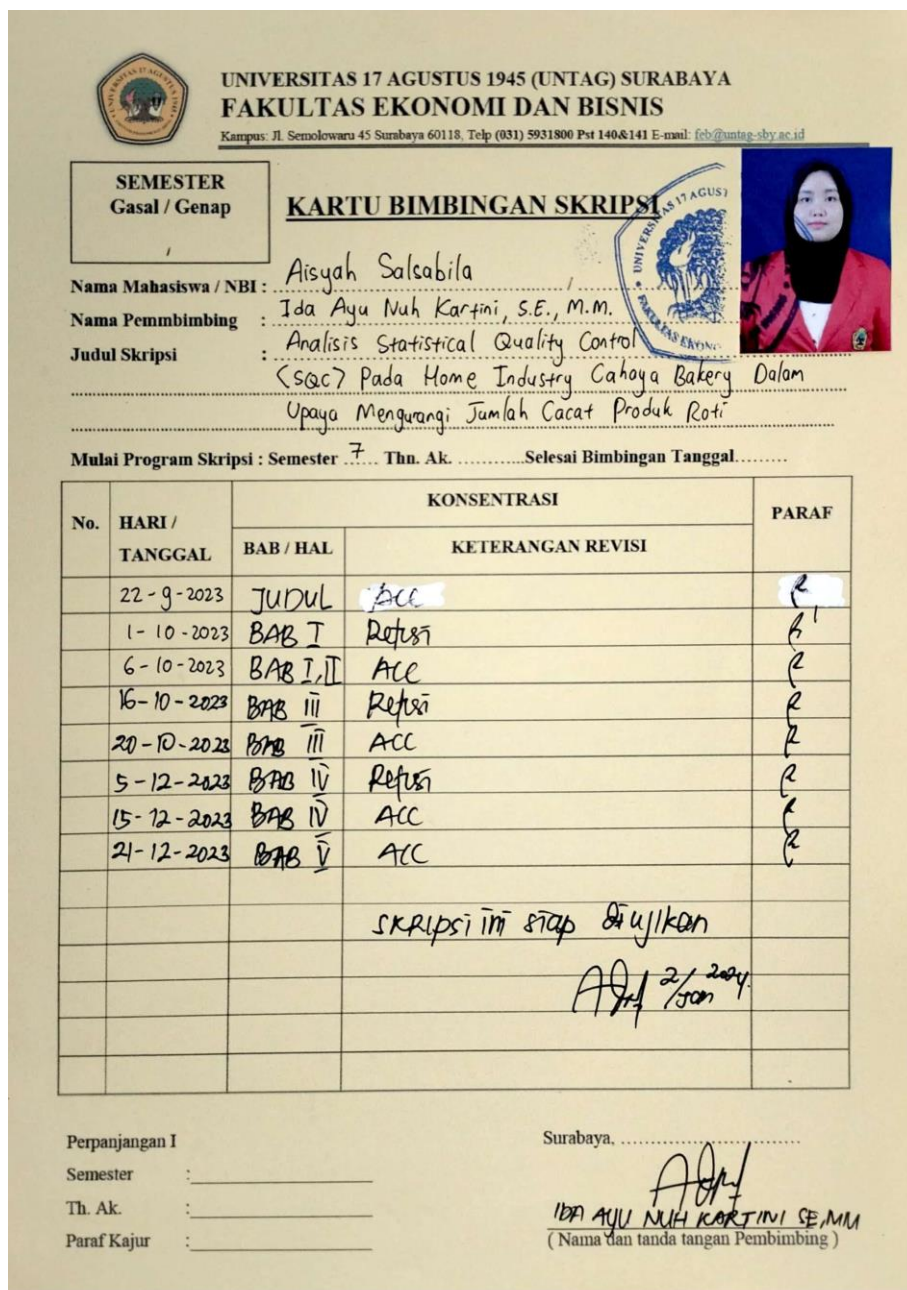 UNIVERSITAS 17 AGUSTUS 1945 (UNTAG) SURABAYA
FAKULTAS EKONOMI DAN BISNIS
Kampus: Jl. Semolowaru 45 Surabaya 60118, Telp (031) 5931800 Pst 140&141 E-mail: feb@untag-sby.ac.id
SEMESTER
Gasal / Genap
/
KARTU BIMBINGAN SKRIPSI
Nama Mahasiswa / NBI : Aisyah Salsabila /
Nama Pemmbimbing : Ida Ayu Nuh Kartini, S.E., M.M.
Judul Skripsi : Analisis Statistical Quality Control
(SQC) Pada Home Industry Cahaya Bakery Dalam
Upaya Mengurangi Jumlah Cacat Produk Roti
Mulai Program Skripsi : Semester 7 Thn. Ak. ............Selesai Bimbingan Tanggal.........
No. HARI / TANGGAL KONSENTRASI PARAF
BAB / HAL KETERANGAN REVISI
22-9-2023 JUDUL ACC
1-10-2023 BAB I Refisi
6-10-2023 BAB I, II ACC
16-10-2023 BAB III Refisi
20-10-2023 BAB III ACC
5-12-2023 BAB IV Refisi
15-12-2023 BAB IV ACC
21-12-2023 BAB V ACC
SKRIPSI ini siap diujikan
2/Jan 2024.
Perpanjangan I
Semester :
Th. Ak. :
Paraf Kajur :
Surabaya, ..................................
IDA AYU NUH KARTINI SE,MM
( Nama dan tanda tangan Pembimbing )